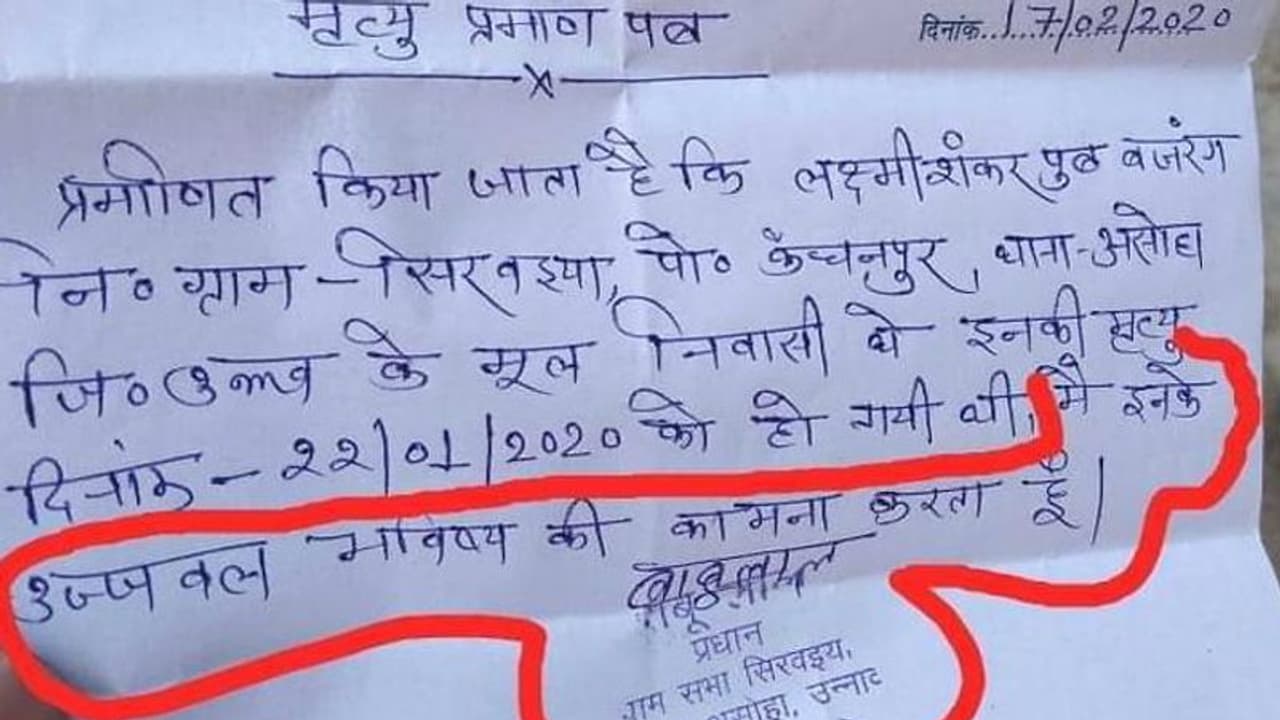 मृत्यु प्रमाण पत्र
दिनांक..17/02/2020
प्रमाणित किया जाता है कि लक्ष्मीशंकर पुत्र बजरंग
नि० ग्राम - सिरवइया, पो० कंचनपुर, थाना-असोहा
जि० उन्नाव के मूल निवासी थे इनकी मृत्यु
दिनांक - 22/01/2020 को हो गयी थी, मै इनके
उज्जवल भविष्य की कामना करता हूँ।
बाबूलाल
प्रधान
ग्राम सभा सिरवइया,
असोहा, उन्नाव